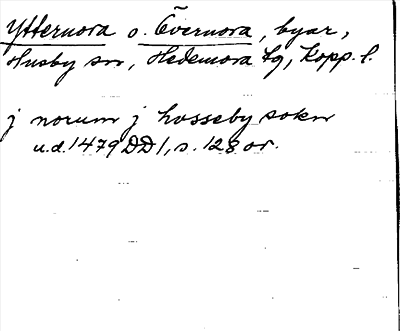 Ytternora o. Övernora, byar,
Husby sn, Hedemora tg, Kopp. l.
j norum j hosseby sokn
u.d. 1479 DD 1, s. 128 or.